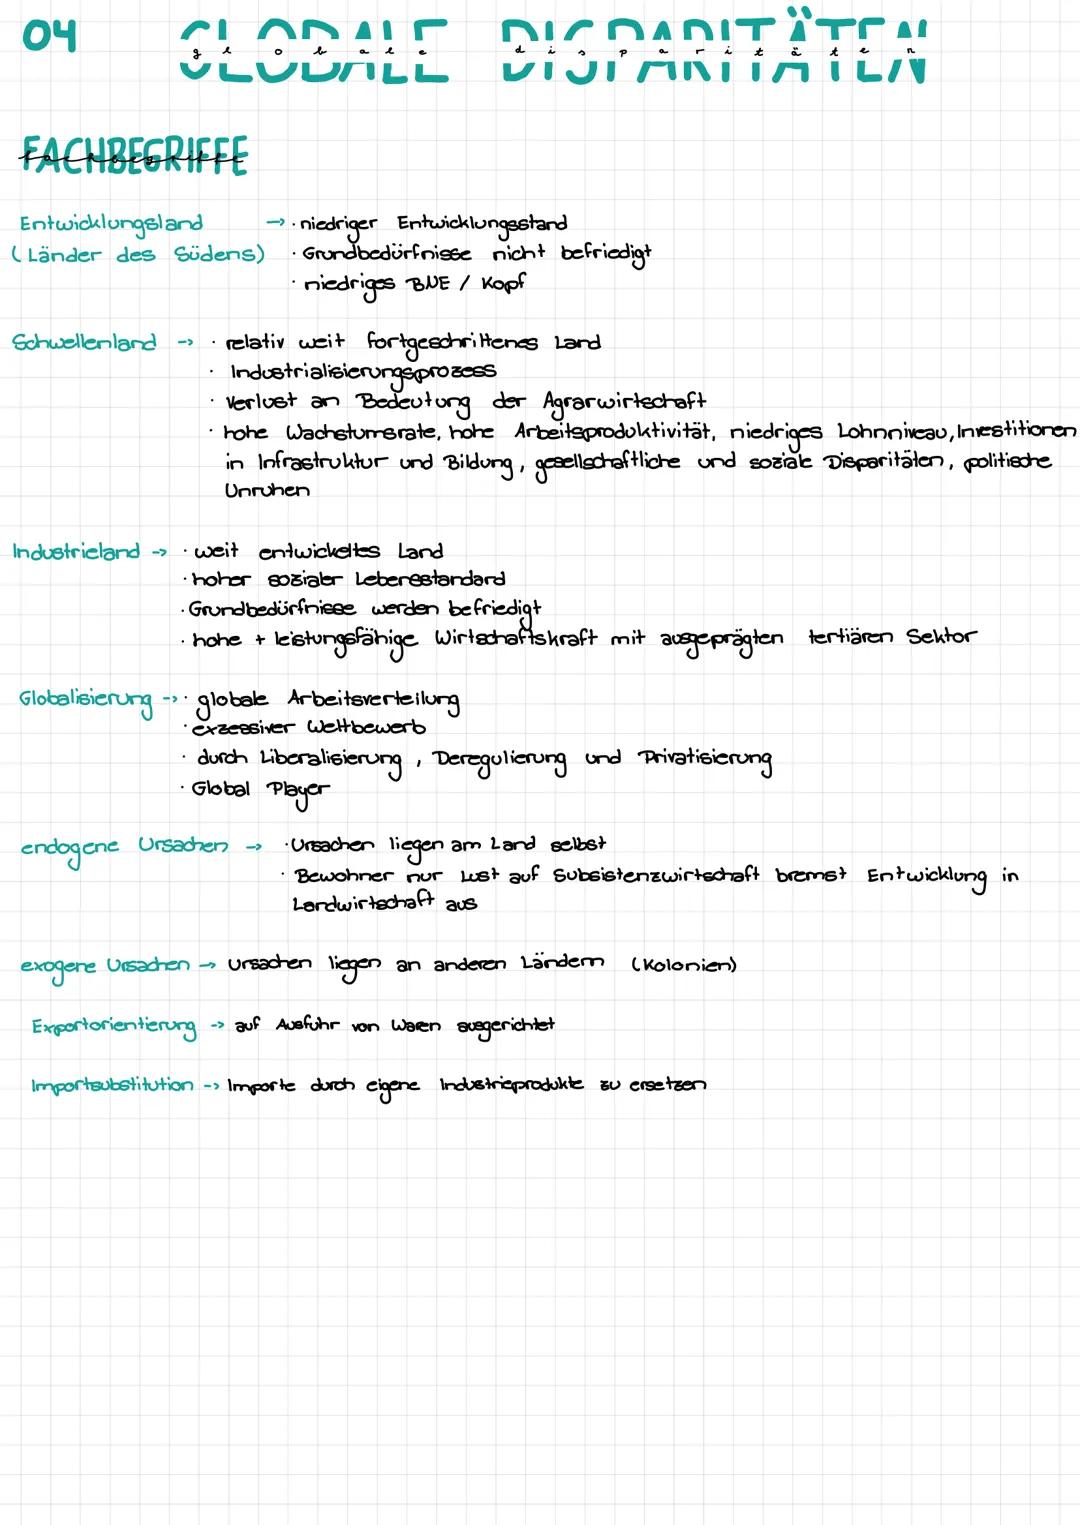 04 GLOBALE DISPARITÄTEN
globale disparitäten
FACHBEGRIFFE
fachbegriffe
Entwicklungsland → · niedriger Entwicklungsstand
(Länder des Südens) · Grundbedürfnisse nicht befriedigt
· niedriges BNE / Kopf
Schwellenland -> · relativ weit fortgeschrittenes Land
· Industrialisierungsprozess
· Verlust an Bedeutung der Agrarwirtschaft
· hohe Wachstumsrate, hohe Arbeitsproduktivität, niedriges Lohnniveau, Investitionen
in Infrastruktur und Bildung, gesellschaftliche und soziale Disparitäten, politische
Unruhen
Industrieland -> · weit entwickeltes Land
· hoher sozialer Lebensstandard
· Grundbedürfnisse werden befriedigt
· hohe + leistungsfähige Wirtschaftskraft mit ausgeprägten tertiären Sektor
Globalisierung -> · globale Arbeitsverteilung
· exzessiver Weltbewerb
· durch Liberalisierung, Deregulierung und Privatisierung
· Global Player
endogene Ursachen -> · Ursachen liegen am Land selbst
· Bewohner nur Lust auf Subsistenzwirtschaft bremst Entwicklung in
Landwirtschaft aus
exogene Ursachen → Ursachen liegen an anderen Ländern (Kolonien)
Exportorientierung -> auf Ausfuhr von Waren ausgerichtet
Importsubstitution -> Importe durch eigene Industrieprodukte zu ersetzen